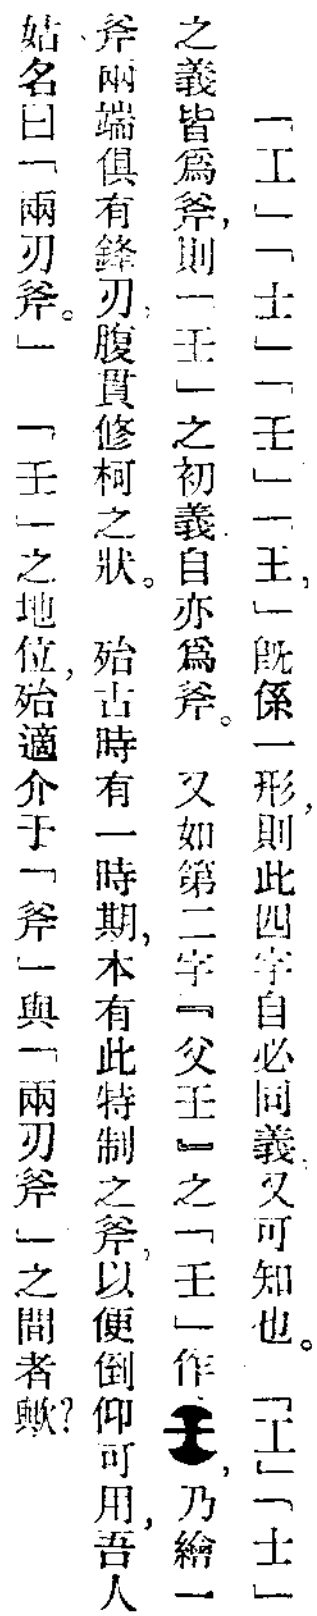 「工」「士」「壬」「王，」旣係一形，則此四字自必同義，又可知也。「工」「士」
之義皆爲斧，則「壬」之初義自亦爲斧。又如第二字『父壬』之「壬」作，乃繪一
斧兩端俱有鋒刃，腹貫修柯之狀。殆古時有一時期，本有此特制之斧，以便倒仰可用，吾人
姑名曰「兩刃斧。」「壬」之地位，殆適介于「斧」與「兩刃斧」之間者歟？